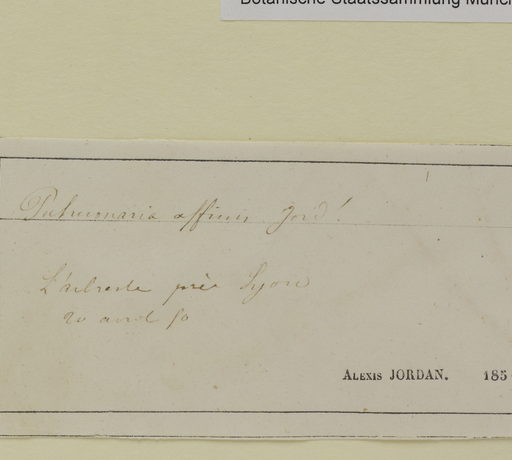 Botanische Staatssammlung Münc
Pulmonaria affinis Jord!
L'arbresle près Lyon
20 avril 50
Alexis JORDAN. 185